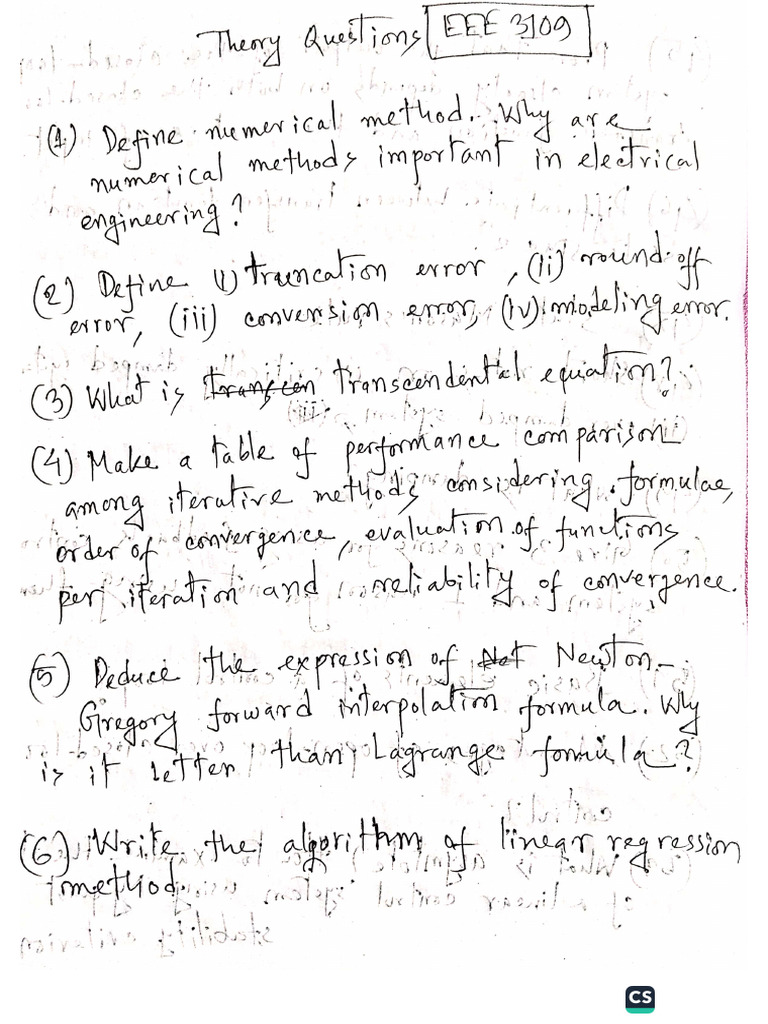 Theory Questions EEE 3109
(1) Define numerical method. Why are
numerical methods important in electrical
engineering?
(2) Define (i) truncation error, (ii) round off
error, (iii) conversion error, (iv) modeling error.
(3) What is transcendental equation?
(4) Make a table of performance comparison
among iterative methods considering formulae,
order of convergence, evaluation of functions
per iteration and reliability of convergence.
(5) Deduce the expression of Newton-
Gregory forward interpolation formula. Why
is it better than Lagrange formula?
(6) Write the algorithm of linear regression
method.
CS